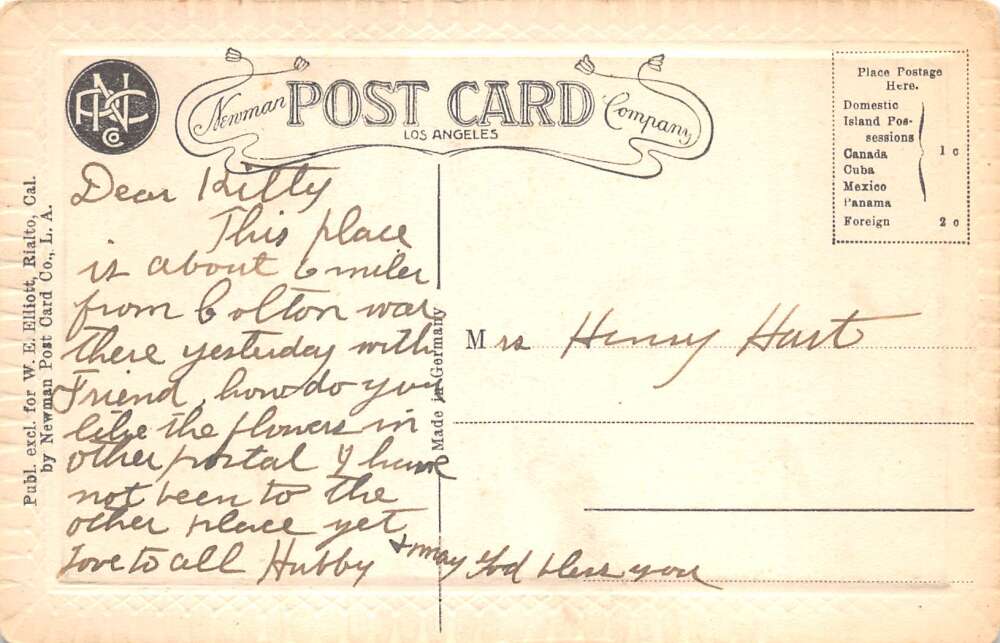 Newman POST CARD Company
LOS ANGELES
Place Postage
Here.
Domestic
Island Pos-
sessions
Canada
Cuba
Mexico
Panama
1 c
Foreign 2 c
Publ. excl. for W. E. Elliott, Rialto, Cal.
by Newman Post Card Co., L. A.
Made in Germany
Dear Kitty
This place
is about 6 miles
from Colton was
there yesterday with
Friend, how do you
like the flowers in
other postal I have
not been to the
other place yet
Love to all Hubby & may God bless you
Mrs Henry Hart